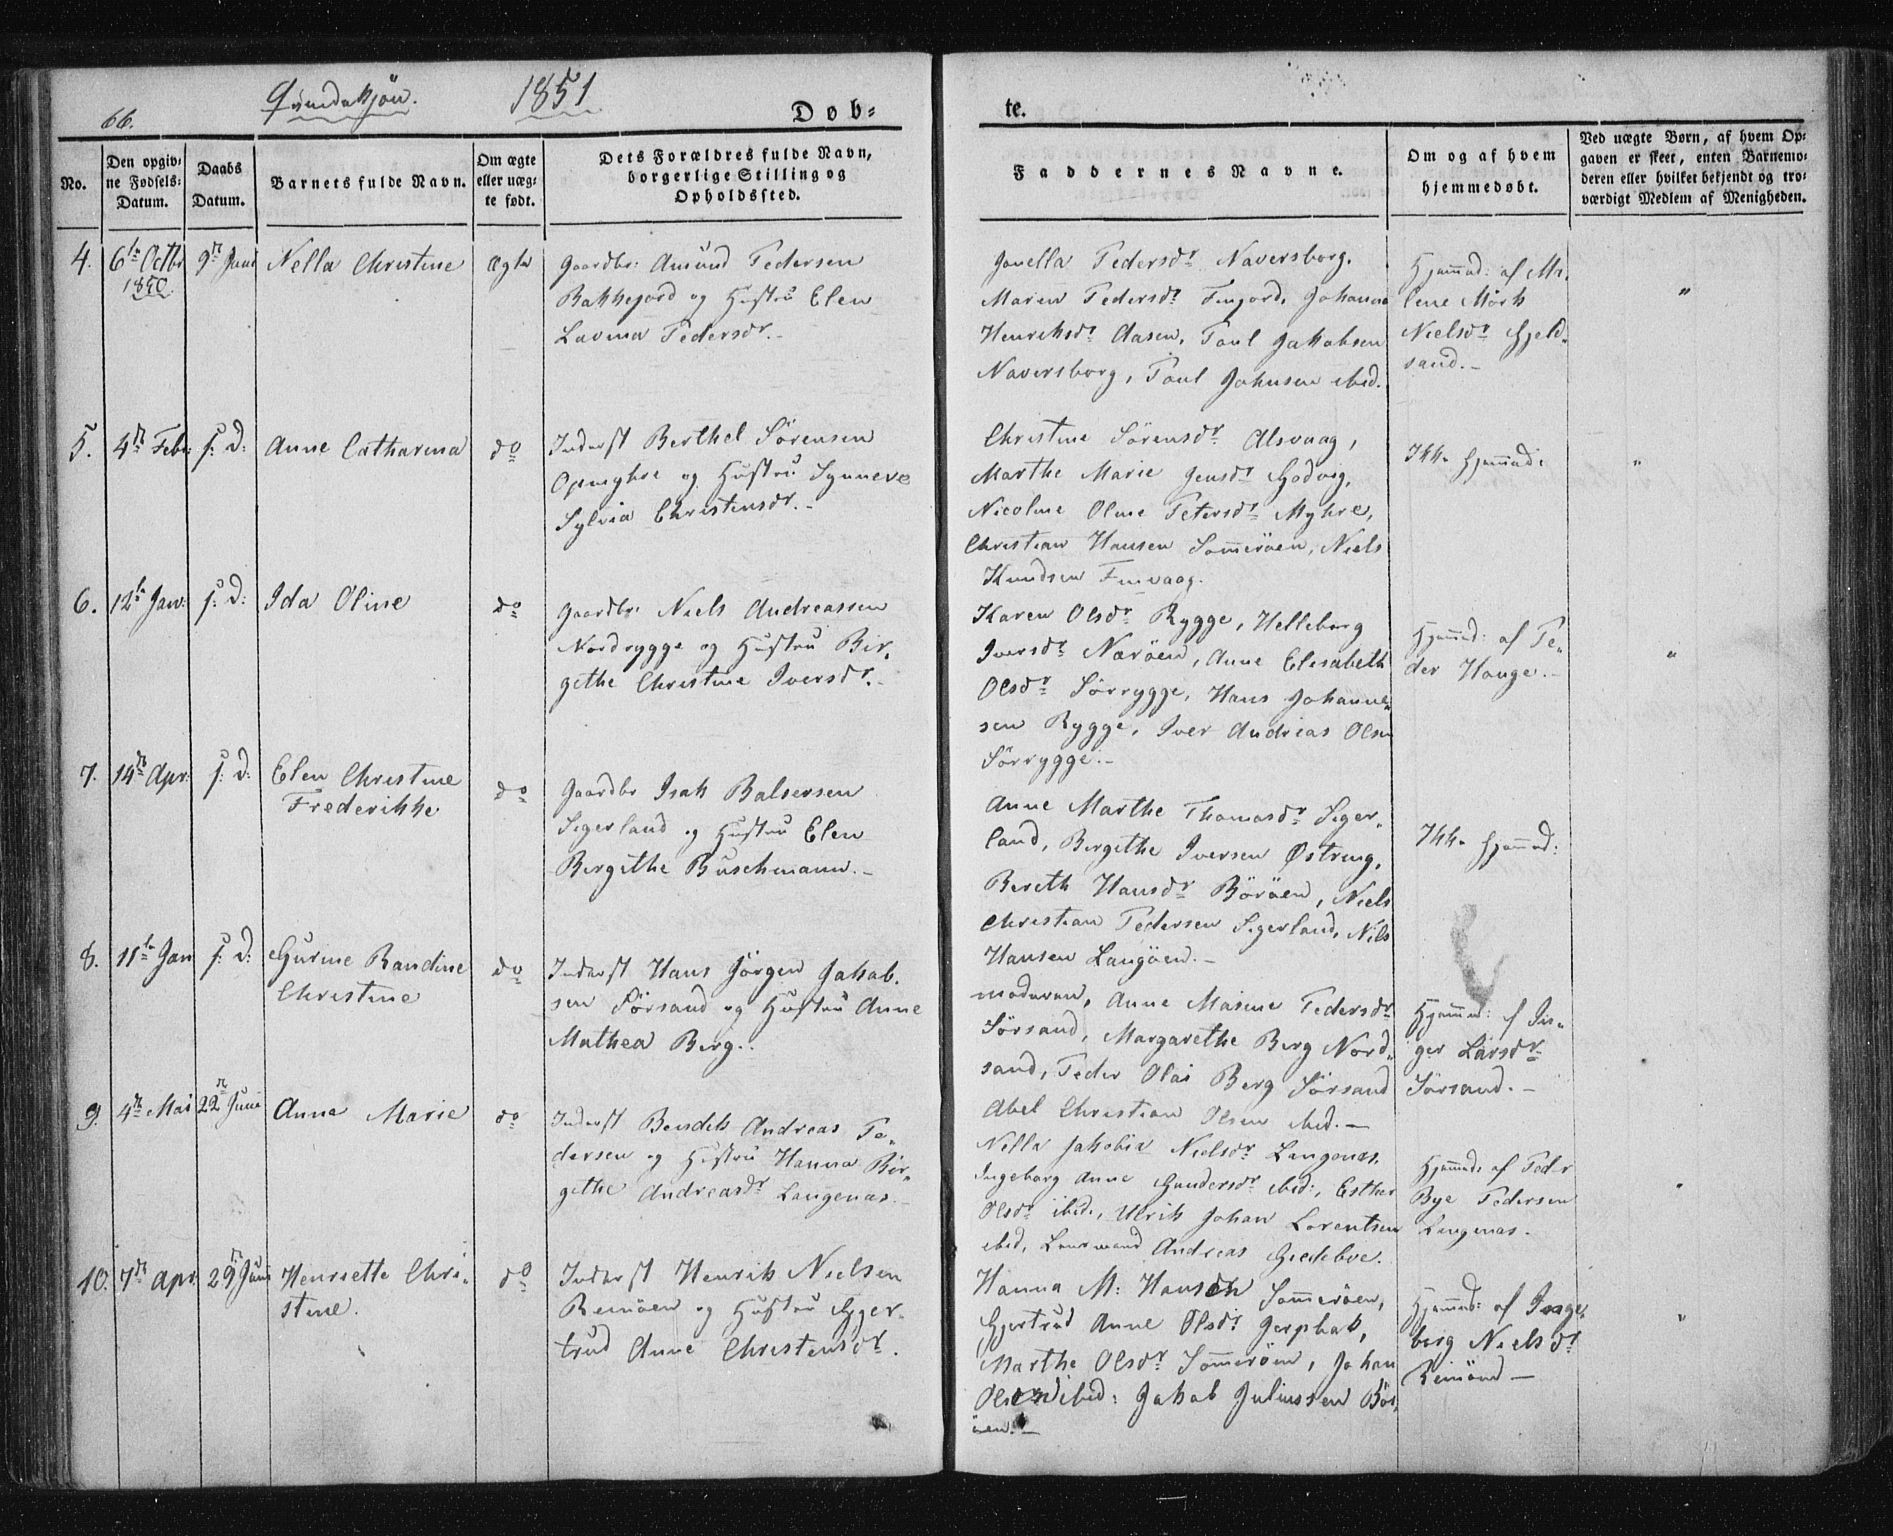 66. Qvindekjön. 1851
Døb=
te.
No.
Den opgiv=
ne Fødsels=
Datum.
Daabs
Datum.
Barnets fulde Navn.
Om ægte
eller uæg=
te født.
Dets Forældres fulde Navn,
borgerlige Stilling og
Opholdssted.
Faddernes Navne.
Om og af hvem
hjemmedøbt.
Ved uægte Børn, af hvem Op=
gaven er skeet, enten Barnemo=
deren eller hvilket bekjendt og tro=
værdigt Medlem af Menigheden.
4. 6te Octbr 1850. 9n Juni Nella Christine ægte
Gaardbr: Amund Pedersen
Bakkejord og Hustru Elen
Lavina Pedersdr.-
Jonella Pedersdr Naversborg.
Maren Pedersdr Finjord, Johanna
Henriksdr Aasen, Poul Jakobsen
Naversborg, Poul Johnsen ibid.
Hjemmed: af Ma,
lene Mörk
Nielsdr Hjeld,
sand.-
"
5. 4n Febr s: D: Anne Catharina do
Inderst Berthel Sörensen
Opmyhre og Hustru Synneve
Sylvia Christensdr.-
Christine Sörensdr Alsvaag,
Marthe Marie Jensdr Godvog,
Nicoline Oline Petersdr Myhre,
Christian Hansen Sommeröen, Niels
Knudsen Finvaag.
Ikke Hjemmed:
"
6. 12te Jan: s: D: Ida Oline do
Gaardbr: Niels Andreassen
Nordrygge og Hustru Bir,
githe Christine Iversdr.-
Karen Olsdr Rygge, Helleborg
Iversdr Næröen, Anne Elisabeth
Olsdr Sörrygge, Hans Johanne,
sen Rygge, Iver Andreas Olsen
Sörrygge.-
Hjemmed: af Pe,
der Hauge.-
"
7. 14n Apr: s: D: Elen Christine
Frederikke do
Gaardbr Isak Balsersen
Sigerland og Hustru Elen
Birgithe Buschmann.-
Anne Marthe Thomasdr Siger,
land, Birgithe Iversen Østeng,
Bereth Hansdr Böröen, Niels
Christian Pedersen Sigerland, Nils
Hansen Langöen.-
Ikke Hjemmed:
8. 11te Jan s: D: Gurine Randine
Christine do
Inderst Hans Jörgen Jakob.
sen Sörsand og Hustru Anne
Mathea Berg.-
moderen, Anne Masine Pedersdr
Sörsand, Margarethe Berg Nord,
sand, Peder Olai Berg Sörsand
Abel Christian Olsen ibid.-
Hjemmed: af In,
ger Larsdr
Sörsand.-
9. 4n Mai 22n Juni Anna Marie do
Inderst Bendik Andreas Pe,
dersen og Hustru Hanna Bir,
githe Andreasdr Langenæs.-
Nella Jakobia Nielsdr Langenæs.
Ingeborg Anne Gundersdr ibid:, Esther
Olsdr ibid:, Ulrik Johan Lorentsen
ibid, Andreas Giedeboe.
Hjemmed: af Peder
Bye Pedersen
Langenæs.
"
10. 7de Apr. 29n Juni Henriette Chri,
stine. do
Inderst Henrik Nielsen
Reinöen og Hustru Gjer,
trud Anne Christensdr.
Hanna M: Hansen Sommeröen,
Gjertrud Anne Olsdr
Marthe Olsdr Sommeröen, Johan
Olsen ibid: Jakob Juliussen Bör,
öen.-
Hjemmed: af Inge,
borg Nielsdr
Reinöen -
"